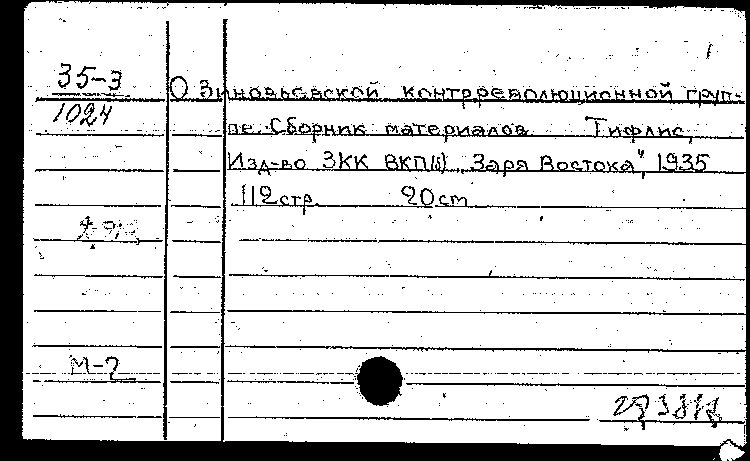 35-3
1024
О Зиновьевской контрреволюционной груп-
пе. Сборник материалов. Тифлис,
Изд-во ЗКК ВКП(б) „Заря Востока", 1935
112 стр. 20 cm
М-2